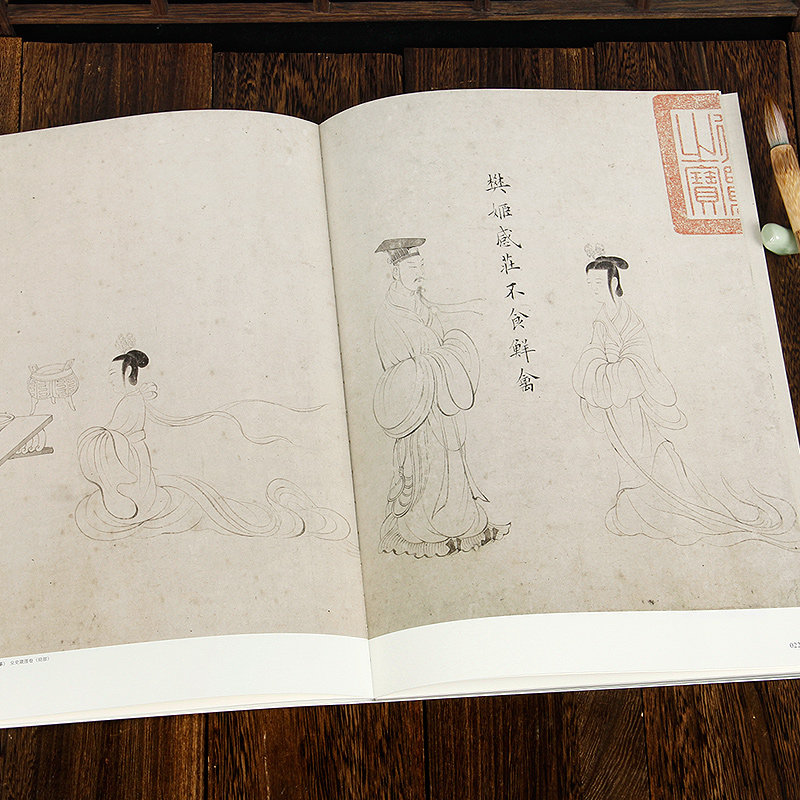 樊姬感莊不食鮮禽
之寶
女史箴圖卷（局部）
022